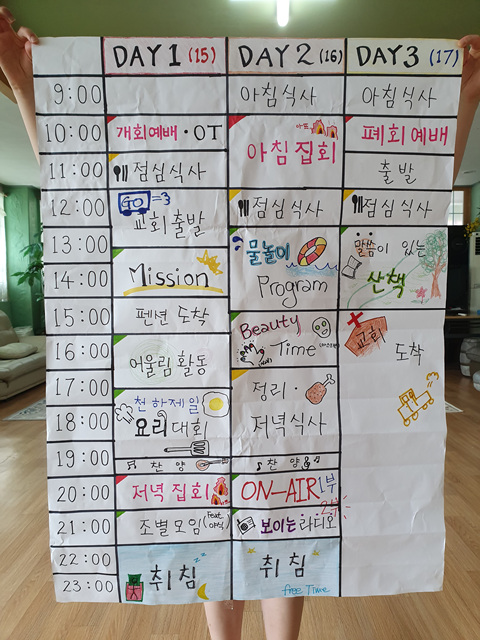 DAY 1 (15)
DAY 2 (16)
DAY 3 (17)
9:00
아침식사
아침식사
10:00
개회예배 · OT
아침 집회
폐회예배
11:00
점심식사
출발
12:00
GO =3
교회 출발
점심식사
점심식사
13:00
물놀이
Program
말씀이 있는
산책
14:00
Mission
15:00
펜션 도착
Beauty
Time
교회
도착
16:00
어울림 활동
17:00
천하제일
요리대회
정리 ·
저녁식사
18:00
19:00
찬양
찬양
20:00
저녁 집회
ON-AIR 1부
21:00
조별모임
보이는 라디오
2부
22:00
취침
취침
23:00
free Time